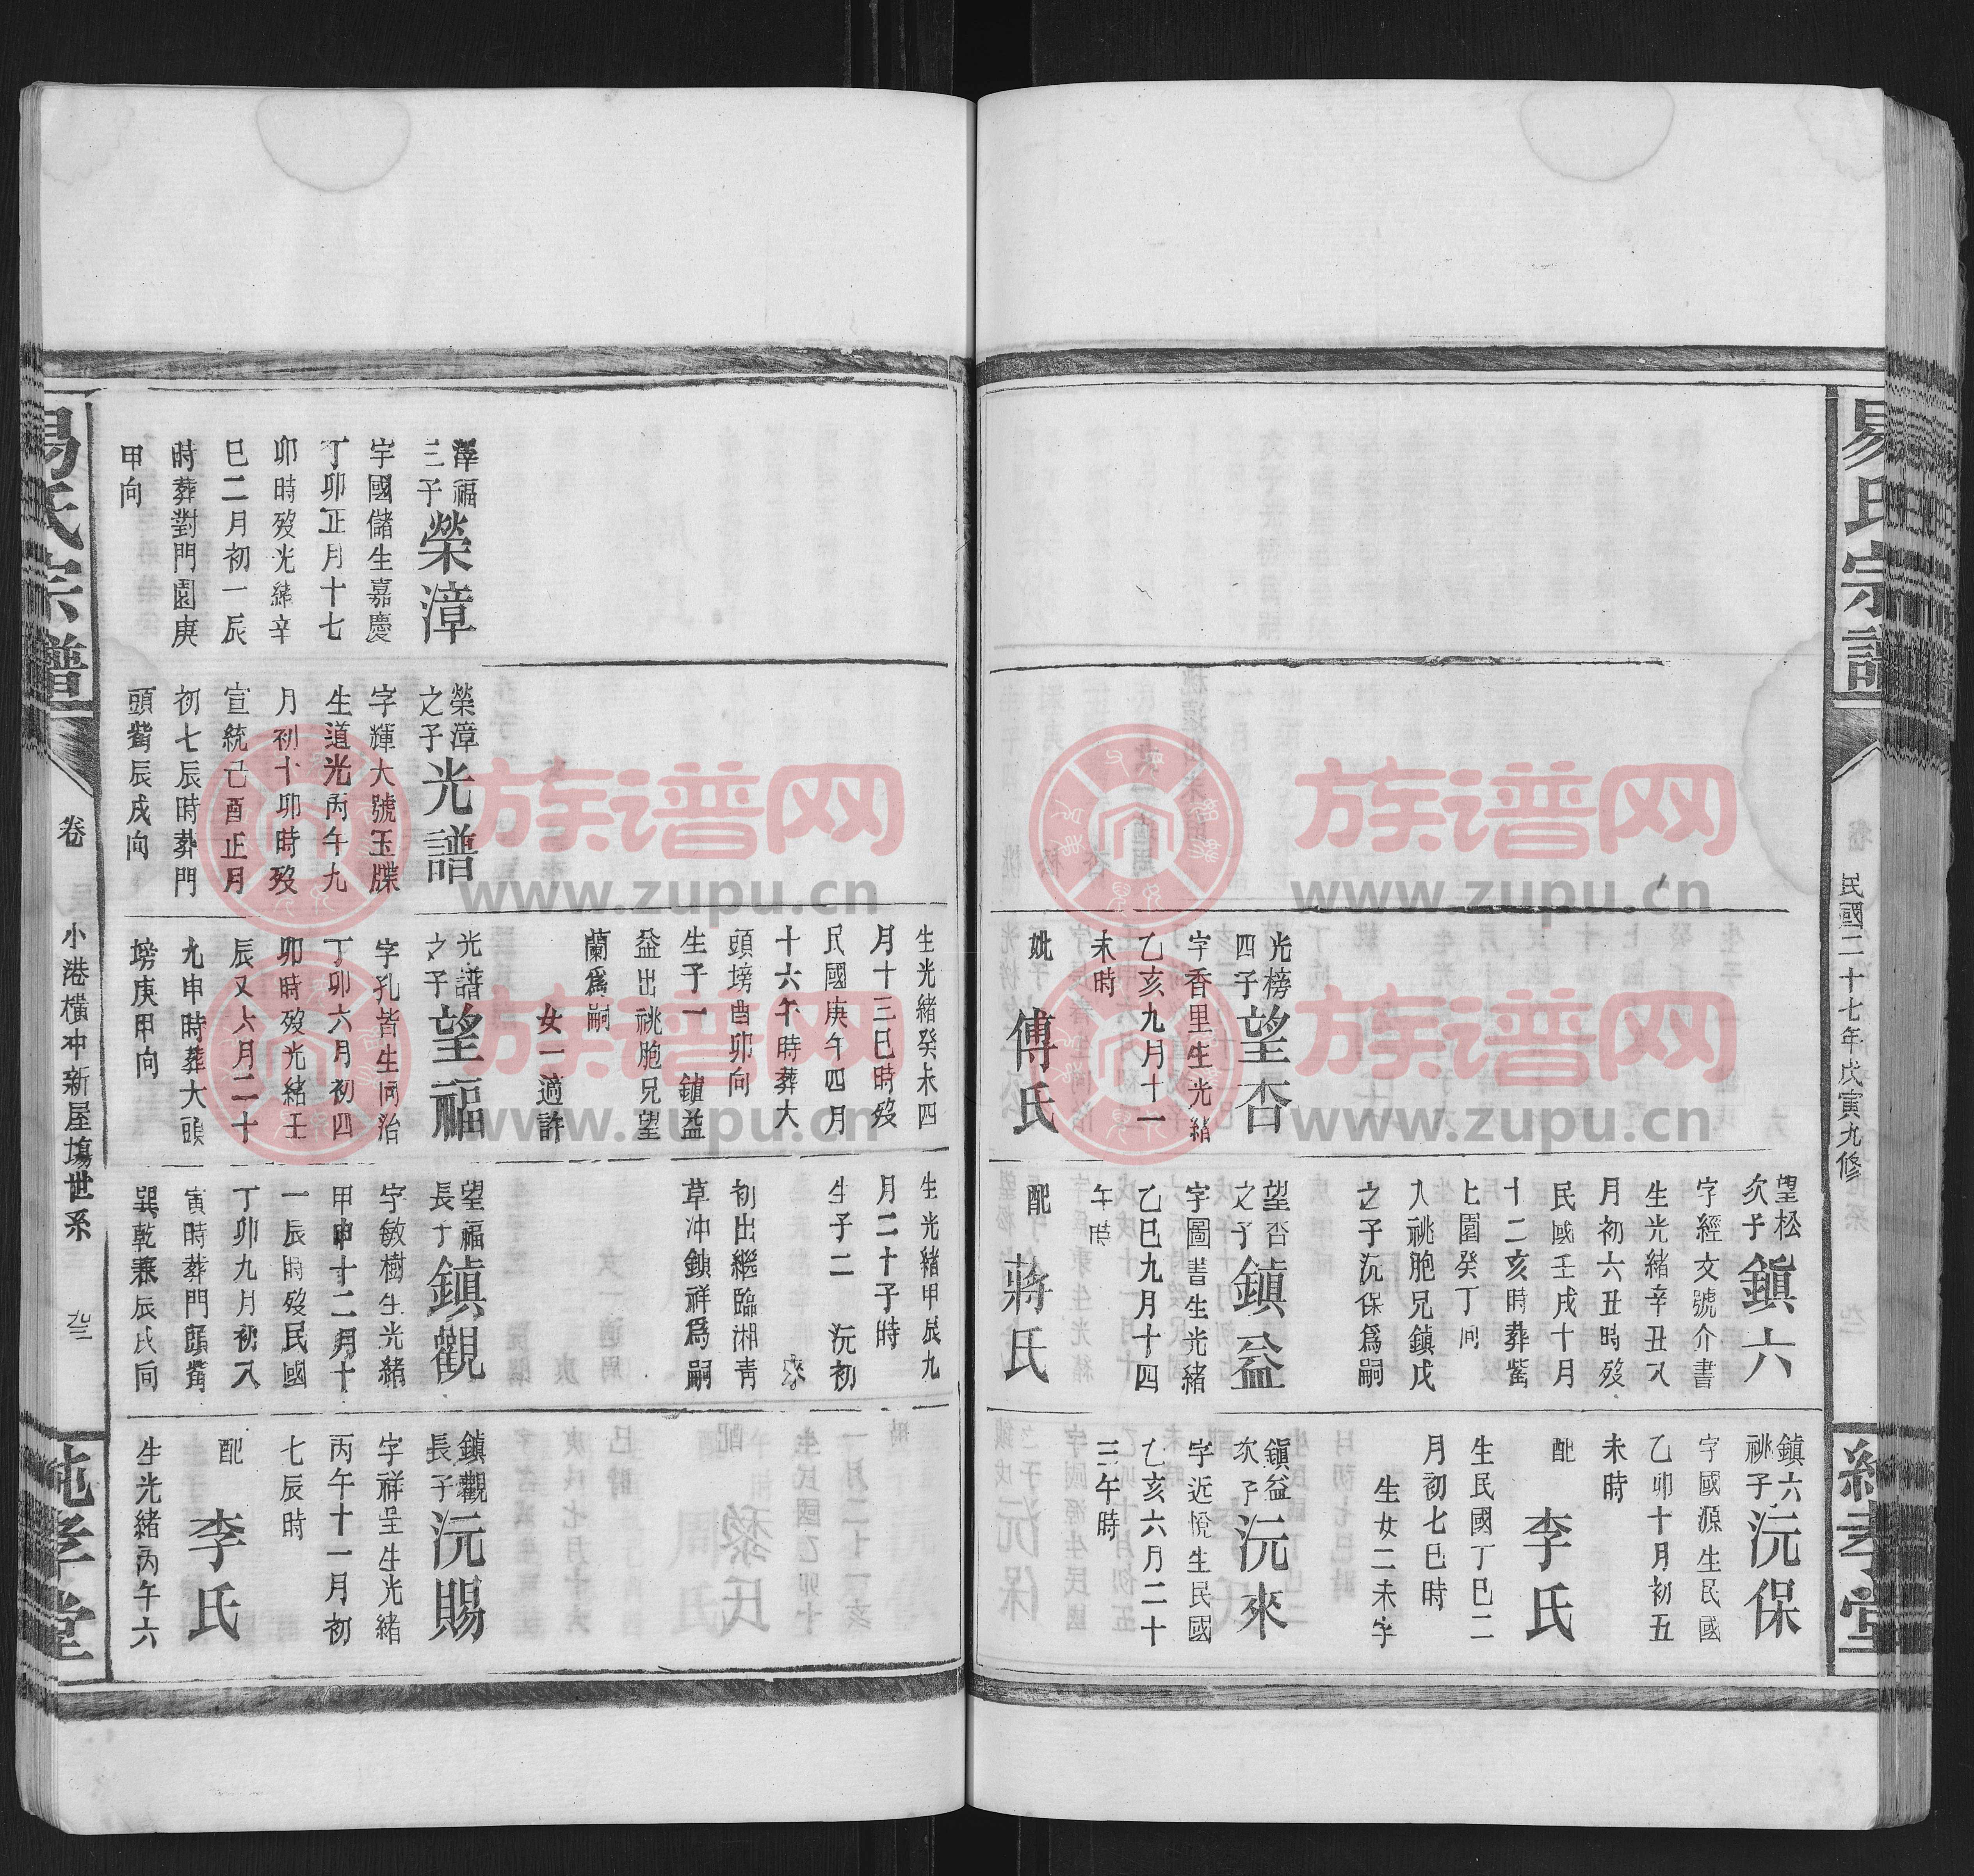 易氏宗譜
民國二十七年戊寅九修
純孝堂
光榜四子
望杏
字香里生光緒
乙亥九月十一
未時
妣
傅氏
望松次子
鎮六
字經文號介書
生光緒辛丑八
月初六丑時歿
民國壬戌十月
十二亥時葬嘴
上園癸丁向
入祧胞兄鎮戊
之子沅保爲嗣
望杏之子
鎮益
字圖書生光緒
乙巳九月十四
午時
配
蔣氏
鎮六祧子
沅保
字國源生民國
乙卯十月初五
未時
配
李氏
生民國丁巳二
月初七巳時
生女二未字
鎮益次子
沅來
字近悅生民國
乙亥六月二十
三午時
澤福三子
榮漳
字國儲生嘉慶
丁卯正月十七
卯時歿光緒辛
巳二月初一辰
時葬對門園庚
甲向
榮漳之子
光譜
字輝大號玉牒
生道光丙午九
月初十卯時歿
宣統己酉正月
初七辰時葬門
頭嘴辰戌向
生光緒癸未四
月十三巳時歿
民國庚午四月
十六午時葬大
頭塝酉卯向
生子一 鎮益
益出祧胞兄望
蘭爲嗣
女一適許
光譜之子
望福
字孔皆生同治
丁卯六月初四
卯時歿光緒壬
辰又六月二十
九申時葬大頭
塝庚甲向
生光緒甲辰九
月二十子時
生子二 沅初
初出繼臨湘青
草冲鎮祥爲嗣
望福長子
鎮觀
字敏樹生光緒
甲申十二月十
一辰時歿民國
丁卯九月初八
寅時葬門頭嘴
巽乾兼辰向
鎮觀長子
沅賜
字祥呈生光緒
丙午十一月初
七辰時
配
李氏
生光緒丙午六
易氏宗譜
卷
小港橫冲新屋塲世系
純孝堂
族谱网
www.zupu.cn
族谱网
www.zupu.cn
族谱网
www.zupu.cn
族谱网
www.zupu.cn